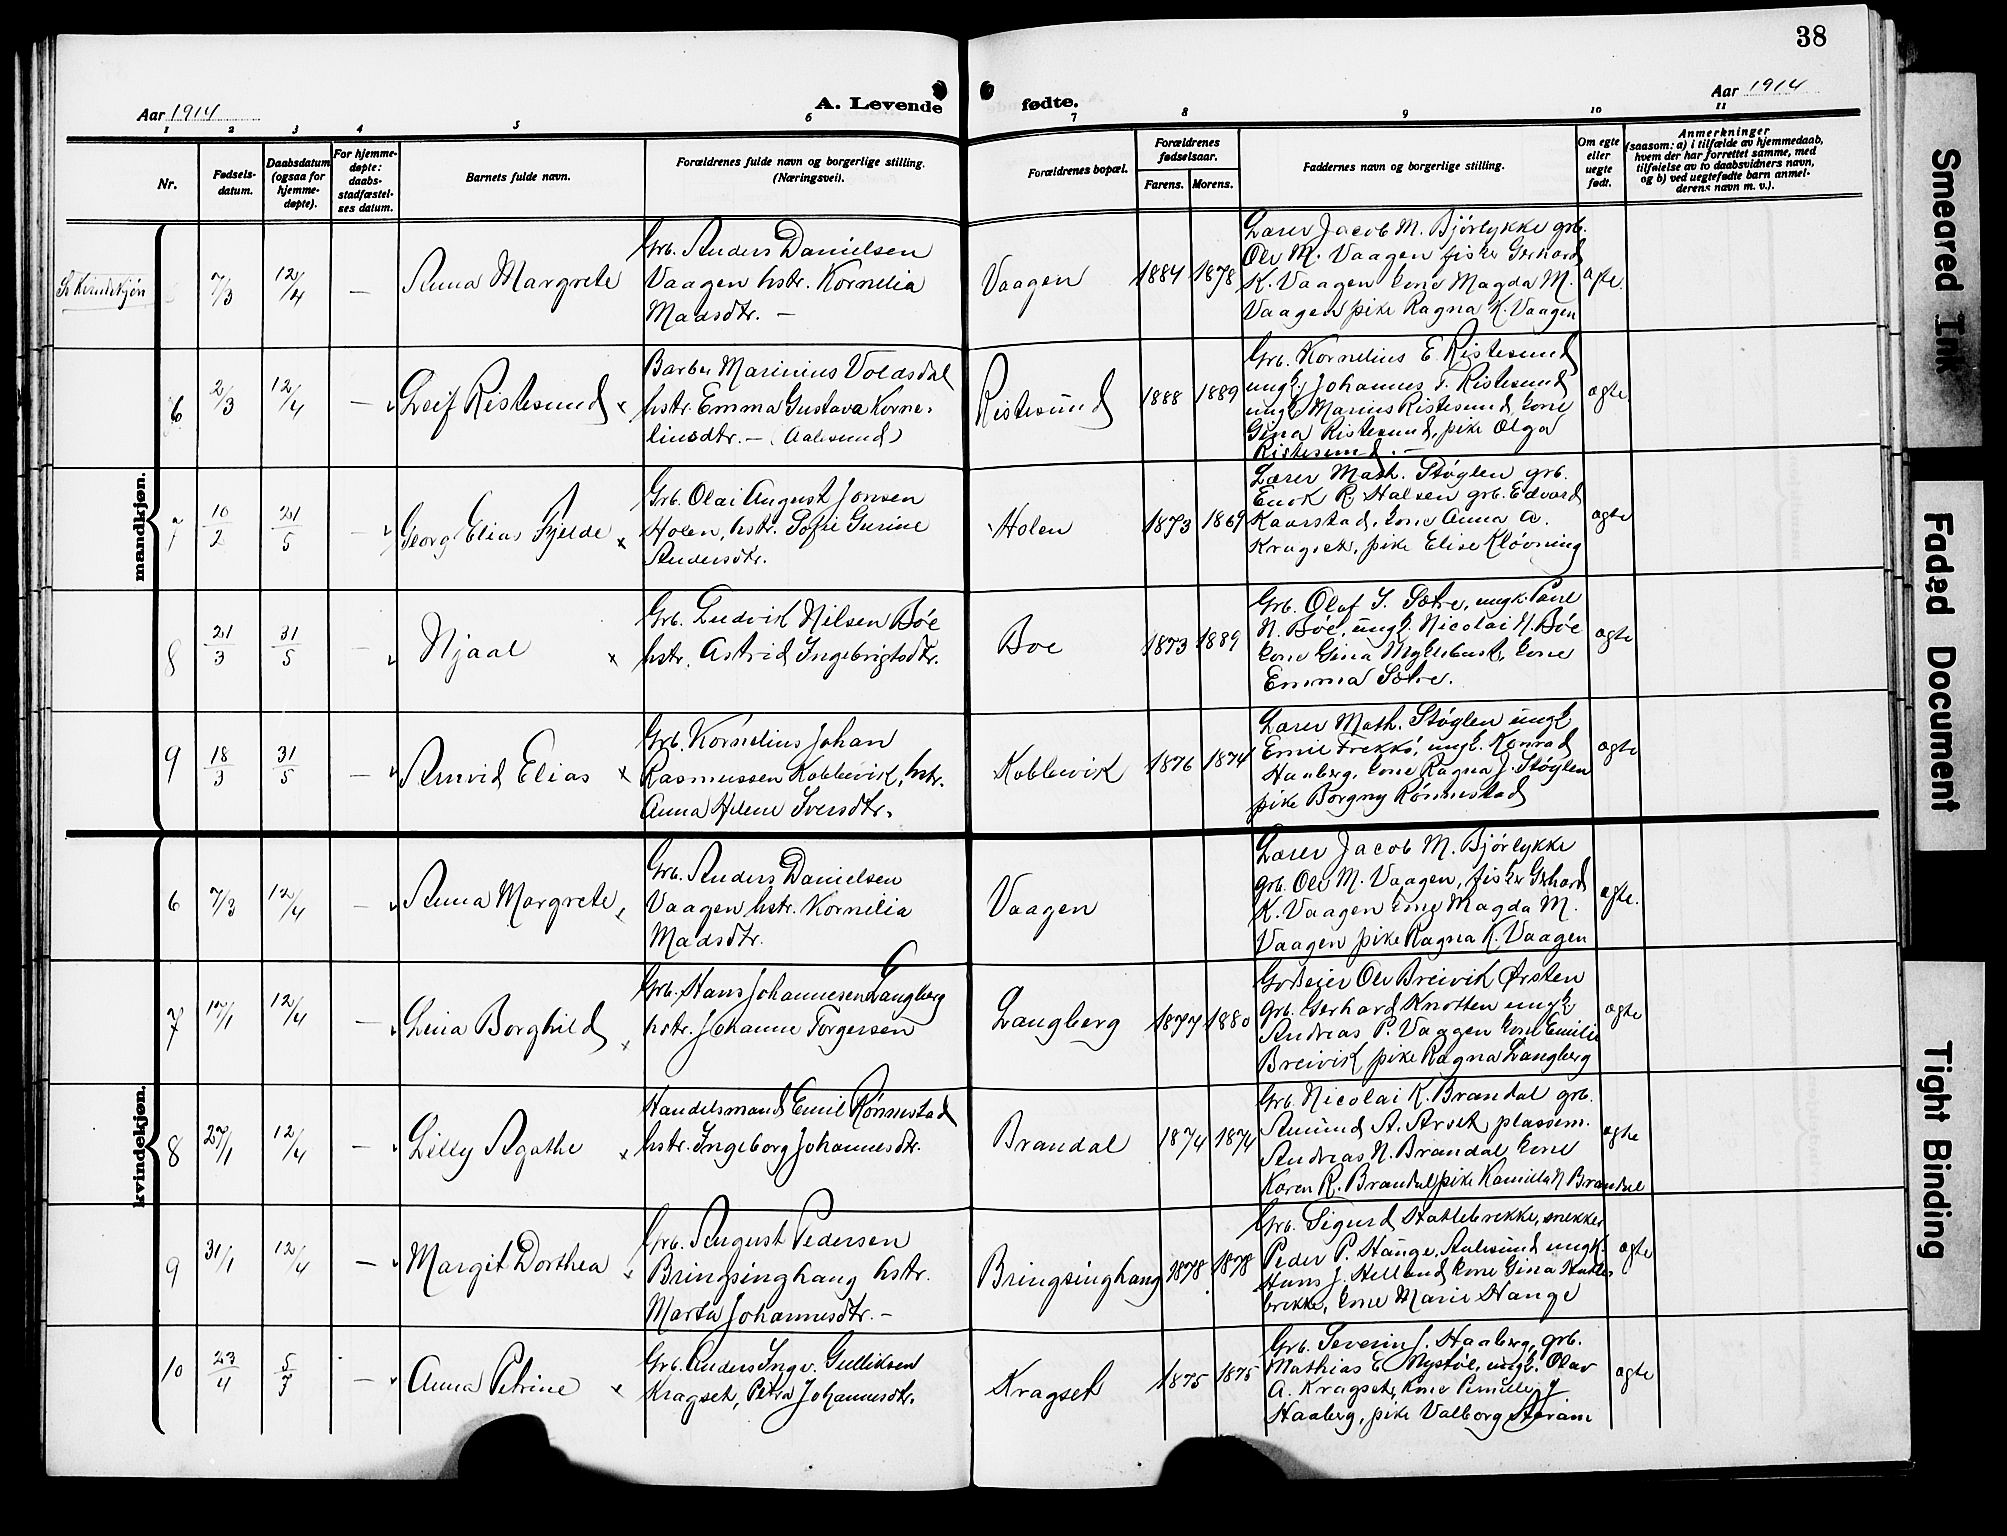 38
Aar 1914
A. Levende
fødte.
Aar 1914
1 2 3 4 5 6 7 8 9 10 11
Nr.
Fødsels-
datum.
Daabsdatum
(ogsaa for
hjemme-
døpte).
For hjemme-
døpte:
daabs-
stadfæstel-
ses datum.
Barnets fulde navn.
Forældrenes fulde navn og borgerlige stilling.
(Næringsvei).
Forældrenes bopæl.
Forældrenes
fødselsaar.
Farens. Morens.
Faddernes navn og borgerlige stilling.
Om egte
eller
uegte
født.
Anmerkninger
(saasom: a) i tilfælde av hjemmedaab,
hvem der har forrettet samme, med
tilføielse av to daabsvidners navn,
og b) ved uegtefødte barn anmel-
derens navn m. v.).
mandkjøn.
Se kvindekjøn
7/3 12/4 — Anna Margrete
Grb. Anders Danielsen
Vaagen hstr. Kornelia
Madsdtr. —
Vaagen 1884 1878
Lærer Jacob M. Bjørlykke grb.
Ole M. Vaagen fisker Gerhard
K. Vaagen kone Magda M.
Vaagen pike Ragna K. Vaagen
ægte
6 2/3 12/4 — Leif Ristesund x
Barber Marinius Voldsdal
hstr. Emma Gustava Korne-
liusdtr. — (Aalesund)
Ristesund 1888 1889
Grb. Kornelius E. Ristesund
ungk. Johannes F. Ristesund
ungk. Marius Ristesund, kone
Gina Ristesund, pike Olga
Ristesund. —
ægte
7 10/2 21/5 — Georg Elias Fjelde x
Grb. Olai August Jonsen
Holen, hstr. Sofie Gurine
Andersdtr.
Holen 1873 1869
Lærer Math. Støylen grb.
Enok R. Halsen grb. Edvard
Kaarstad, kone Anna A.
Kragset, pike Elise Kløvning
ægte
8 21/3 31/5 — Njaal x
Grb. Ludvik Nilsen Bøe
hstr. Astrid Ingebrigtsdtr.
Boe 1873 1889
Grb. Olaf S. Sætre, ungk. Paul
N. Bøe, ungk. Nicolai N. Bøe
kone Gina Myklebust, kone
Emma Sætre.
ægte
9 18/3 31/5 — Arnvid Elias x
Grb. Kornelius Johan
Rasmussen Koblevik, hstr.
Anna Helene Iversdtr.
Koblevik 1876 1874
Lærer Math. Støylen ungk
Emil Frekkø, ungk. Konrad
Haaberg, kone Ragna J. Støylen
pike Borgny Rønnestad
ægte
kvindekjøn.
6 7/3 12/4 — Anna Margrete x
Grb. Anders Danielsen
Vaagen hstr. Kornelia
Madsdtr.
Vaagen
Lærer Jacob M. Bjørlykke
grb. Ole M. Vaagen, fisker Gerhard
K. Vaagen kone Magda M.
Vaagen pike Ragna K. Vaagen
ægte.
7 17/1 12/4 — Lina Borghild x
Grb. Hans Johannesen Langberg
hstr. Johanne Torgersen
Langberg 1877 1880
Ole Breivik Ørsten
grb. Gerhard Knotten ungk.
Andreas P. Vaagen kone Emilie
Breivik, pike Ragna Langberg
ægte
8 27/1 12/4 — Lilly Agathe x
Handelsmand Emil Rønnestad
hstr. Ingeborg Johannesdtr.
Brandal 1874 1874
Grb. Nicolai K. Brandal grb.
Amund A. Arset plassem.
Andreas N. Brandal kone
Karen R. Brandal pike Kamilla N Brandal
ægte
9 31/1 12/4 — Margit Dorthea x
Grb. August Pedersen
Bringsinghaug hstr.
Marta Johannesdtr. —
Bringsinghaug 1878 1878
Grb. Sigurd Hatlebrekke, snekker
Peder P. Hauge, Aalesund ungk.
Hans J. Helland kone Gina Hatle-
brekke, kone Marie Hauge
ægte
10 23/4 5/7 — Anna Petrine x
Grb. Anders Ingv. Gulliksen
Kragset, Petra Johannesdtr.
Kragset 1875 1875
Grb. Severin J. Haaberg, grb.
Mathias E Nystøl, ungk. Olav
A. Kragset, kone Pernille J
Haaberg, pike Valborg
ægte
Smeared Ink
Faded Document
Tight Binding